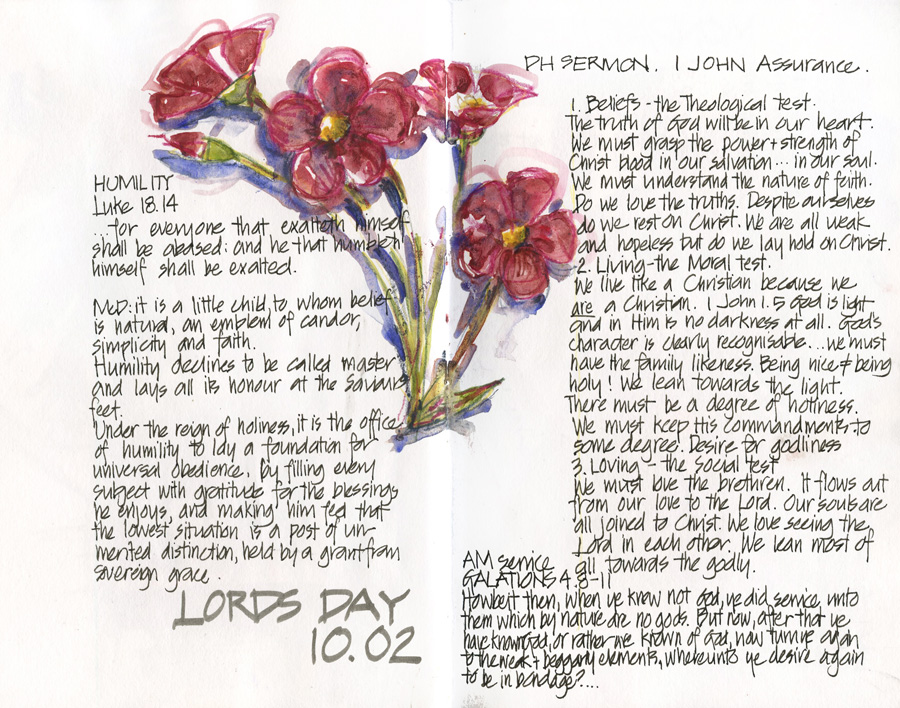 HUMILITY
Luke 18.14
...for everyone that exalteth himself
shall be abased; and he that humbleth
himself shall be exalted.
McD: it is a little child, to whom belief
is natural, an emblem of candor,
simplicity and faith.
Humility declines to be called master
and lays all its honour at the Saviours
feet.
Under the reign of holiness, it is the office
of humility to lay a foundation for
universal obedience, by filling every
subject with gratitude for the blessings
he enjoys, and making him feel that
the lowest situation is a post of un-
merited distinction, held by a grant from
sovereign grace.
LORDS DAY
10.02
PH SERMON. 1 JOHN Assurance.
1. Beliefs - the Theological test.
The truth of God will be in our heart.
We must grasp the power + strength of
Christ blood in our salvation... in our soul.
We must understand the nature of faith.
Do we love the truths. Despite ourselves
do we rest on Christ. We are all weak
and hopeless but do we lay hold on Christ.
2. Living - the Moral test.
We live like a Christian because we
are a Christian. 1 John 1.5 God is light
and in Him is no darkness at all. God's
character is clearly recognisable... we must
have the family likeness. Being nice & being
holy! We lean towards the light.
There must be a degree of holiness.
We must keep His commandments - to
some degree. Desire for godliness
3. Loving - the Social test
We must love the brethren. It flows out
from our love to the Lord. Our souls are
all joined to Christ. We love seeing the
Lord in each other. We lean most of
all towards the godly.
AM service
GALATIONS 4.8-11
Howbeit then, when ye knew not God, ye did service unto
them which by nature are no gods. But now, after that ye
have known God, or rather are known of God, how turn ye again
to the weak + beggarly elements, whereunto ye desire again
to be in bondage?....